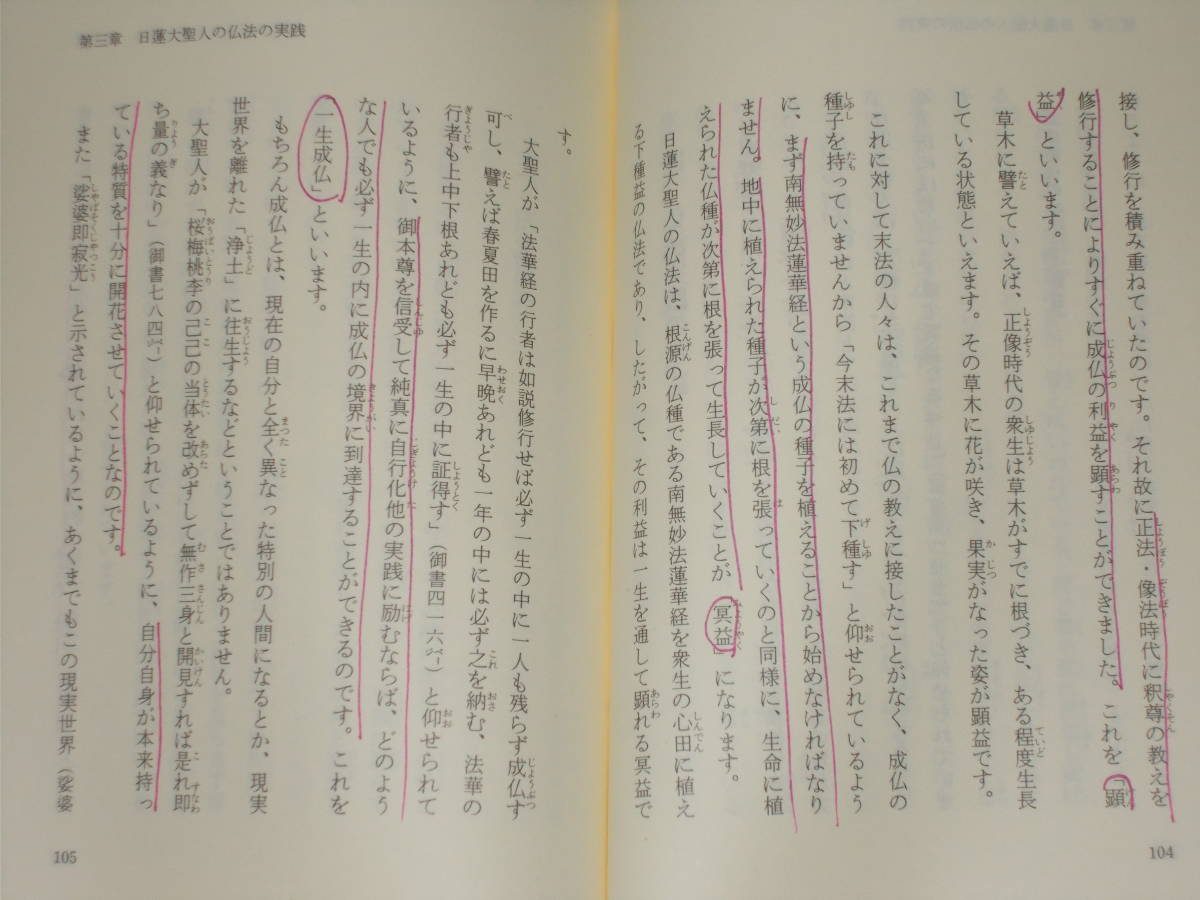 接し、修行を積み重ねていたのです。それ故に正法・像法時代に釈尊の教えを
修行することによりすぐに成仏の利益を顕すことができました。これを「顕
益」といいます。
草木に譬えていえば、正像時代の衆生は草木がすでに根づき、ある程度生長
している状態といえます。その草木に花が咲き、果実がなった姿が顕益です。
これに対して末法の人々は、これまで仏の教えに接したことがなく、成仏の
種子を持っていませんから「今末法には初めて下種す」と仰せられているよう
に、まず南無妙法蓮華経という成仏の種子を植えることから始めなければなり
ません。地中に植えられた種子が次第に根を張っていくのと同様に、生命に植
えられた仏種が次第に根を張って生長していくことが「冥益」になります。
日蓮大聖人の仏法は、根源の仏種である南無妙法蓮華経を衆生の心田に植え
る下種益の仏法であり、したがって、その利益は一生を通して顕れる冥益で
104
第三章 日蓮大聖人の仏法の実践
す。
大聖人が「法華経の行者は如説修行せば必ず一生の中に一人も残らず成仏す
可し、譬えば春夏田を作るに早晩あれども一年の中には必ず之を納む、法華の
行者も上中下根あれども必ず一生の中に証得す」（御書四一六㌻）と仰せられて
いるように、御本尊を信受して純真に自行化他の実践に励むならば、どのよう
な人でも必ず一生の内に成仏の境界に到達することができるのです。これを
「一生成仏」といいます。
もちろん成仏とは、現在の自分と全く異なった特別の人間になるとか、現実
世界を離れた「浄土」に往生するなどということではありません。
大聖人が「桜梅桃李の己己の当体を改めずして無作三身と開見すれば是れ即
ち量の義なり」（御書七八四㌻）と仰せられているように、自分自身が本来持っ
ている特質を十分に開花させていくことなのです。
また「娑婆即寂光」と示されているように、あくまでもこの現実世界（娑婆
105